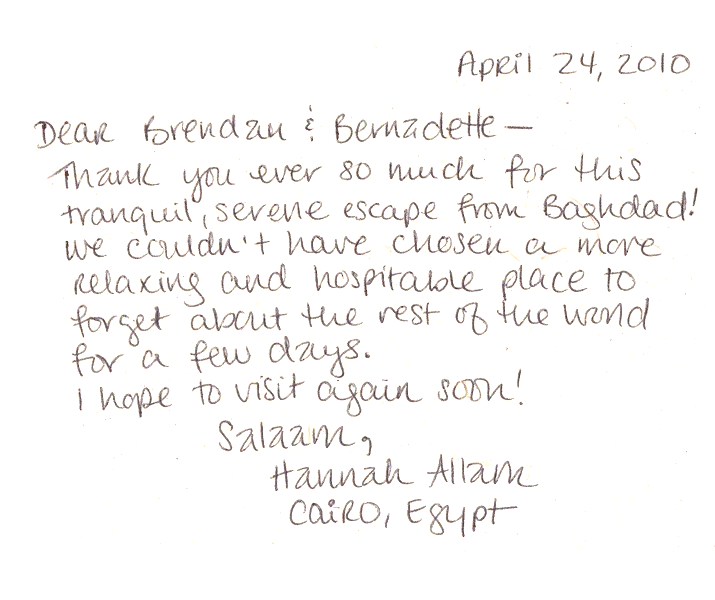 April 24, 2010
Dear Brendan & Bernadette —
Thank you ever so much for this
tranquil, serene escape from Baghdad!
we couldn't have chosen a more
relaxing and hospitable place to
forget about the rest of the world
for a few days.
i hope to visit again soon!
Salaam,
Hannah Allam
Cairo, Egypt